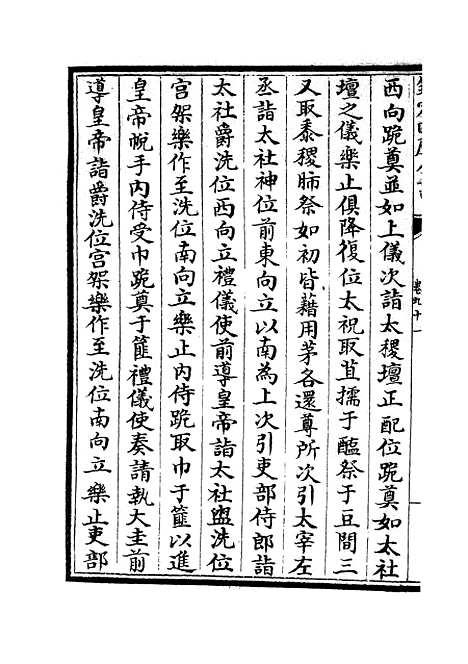 西向跪奠並如上儀次詣太稷壇正配位跪奠如太社
壇之儀樂止俱降復位太祝取菹擩于醢祭于豆間三
又取黍稷肺祭如初皆藉用茅各還尊所次引太宰左
丞詣太社神位前東向立以南為上次引吏部侍郎詣
太社爵洗位西向立禮儀使前導皇帝詣太社盥洗位
宮架樂作至洗位南向立樂止內侍跪取巾于篚以進
皇帝帨手內侍受巾跪奠于篚禮儀使奏請執大圭前
導皇帝詣爵洗位宮架樂作至洗位南向立樂止吏部